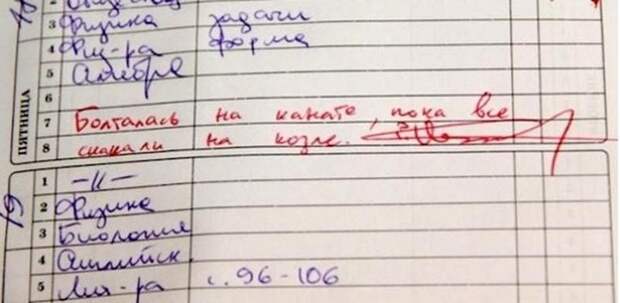 3 Физика задачи
4 Физ-ра форма
5 Алгебра
6
ПЯТНИЦА
7 Болталась на канате, пока все
8 скакали на козле.
19
1 -〃-
2 Физика
3 Биология
4 Английск.
5 Лит-ра с. 96-106